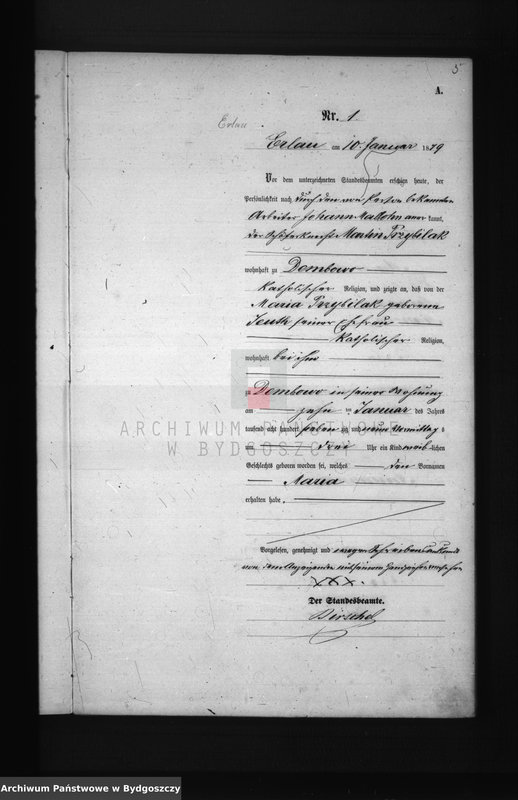 5
A.
Erlau
Nr. 1
Erlau am 10. Januar 1879
Vor dem unterzeichneten Standesbeamten erschien heute, der
Persönlichkeit nach durch den von Person bekannten
Arbeiter Johann aner kannt,
der Schäferknecht Martin Przybilak
wohnhaft zu Dombowo
katholischer Religion, und zeigte an, daß von der
Maria Przybilak geborene
seiner Ehefrau
katholischer Religion,
wohnhaft bei ihm
zu Dombowo in seiner Wohnung
am zehn ten Januar des Jahres
tausend acht hundert sieben zig und neun Vormittag s
um drei Uhr ein Kind weib lichen
Geschlechts geboren worden sei, welches den Vornamen
Maria
erhalten habe.
Vorgelesen, genehmigt und wegen Schreibensunkunde
von dem Anzeigenden mit seinem Handzeichen versehen
XXX.
Der Standesbeamte.
ARCHIWUM PAŃSTWOWE
W BYDGOSZCZY
Archiwum Państwowe w Bydgoszczy